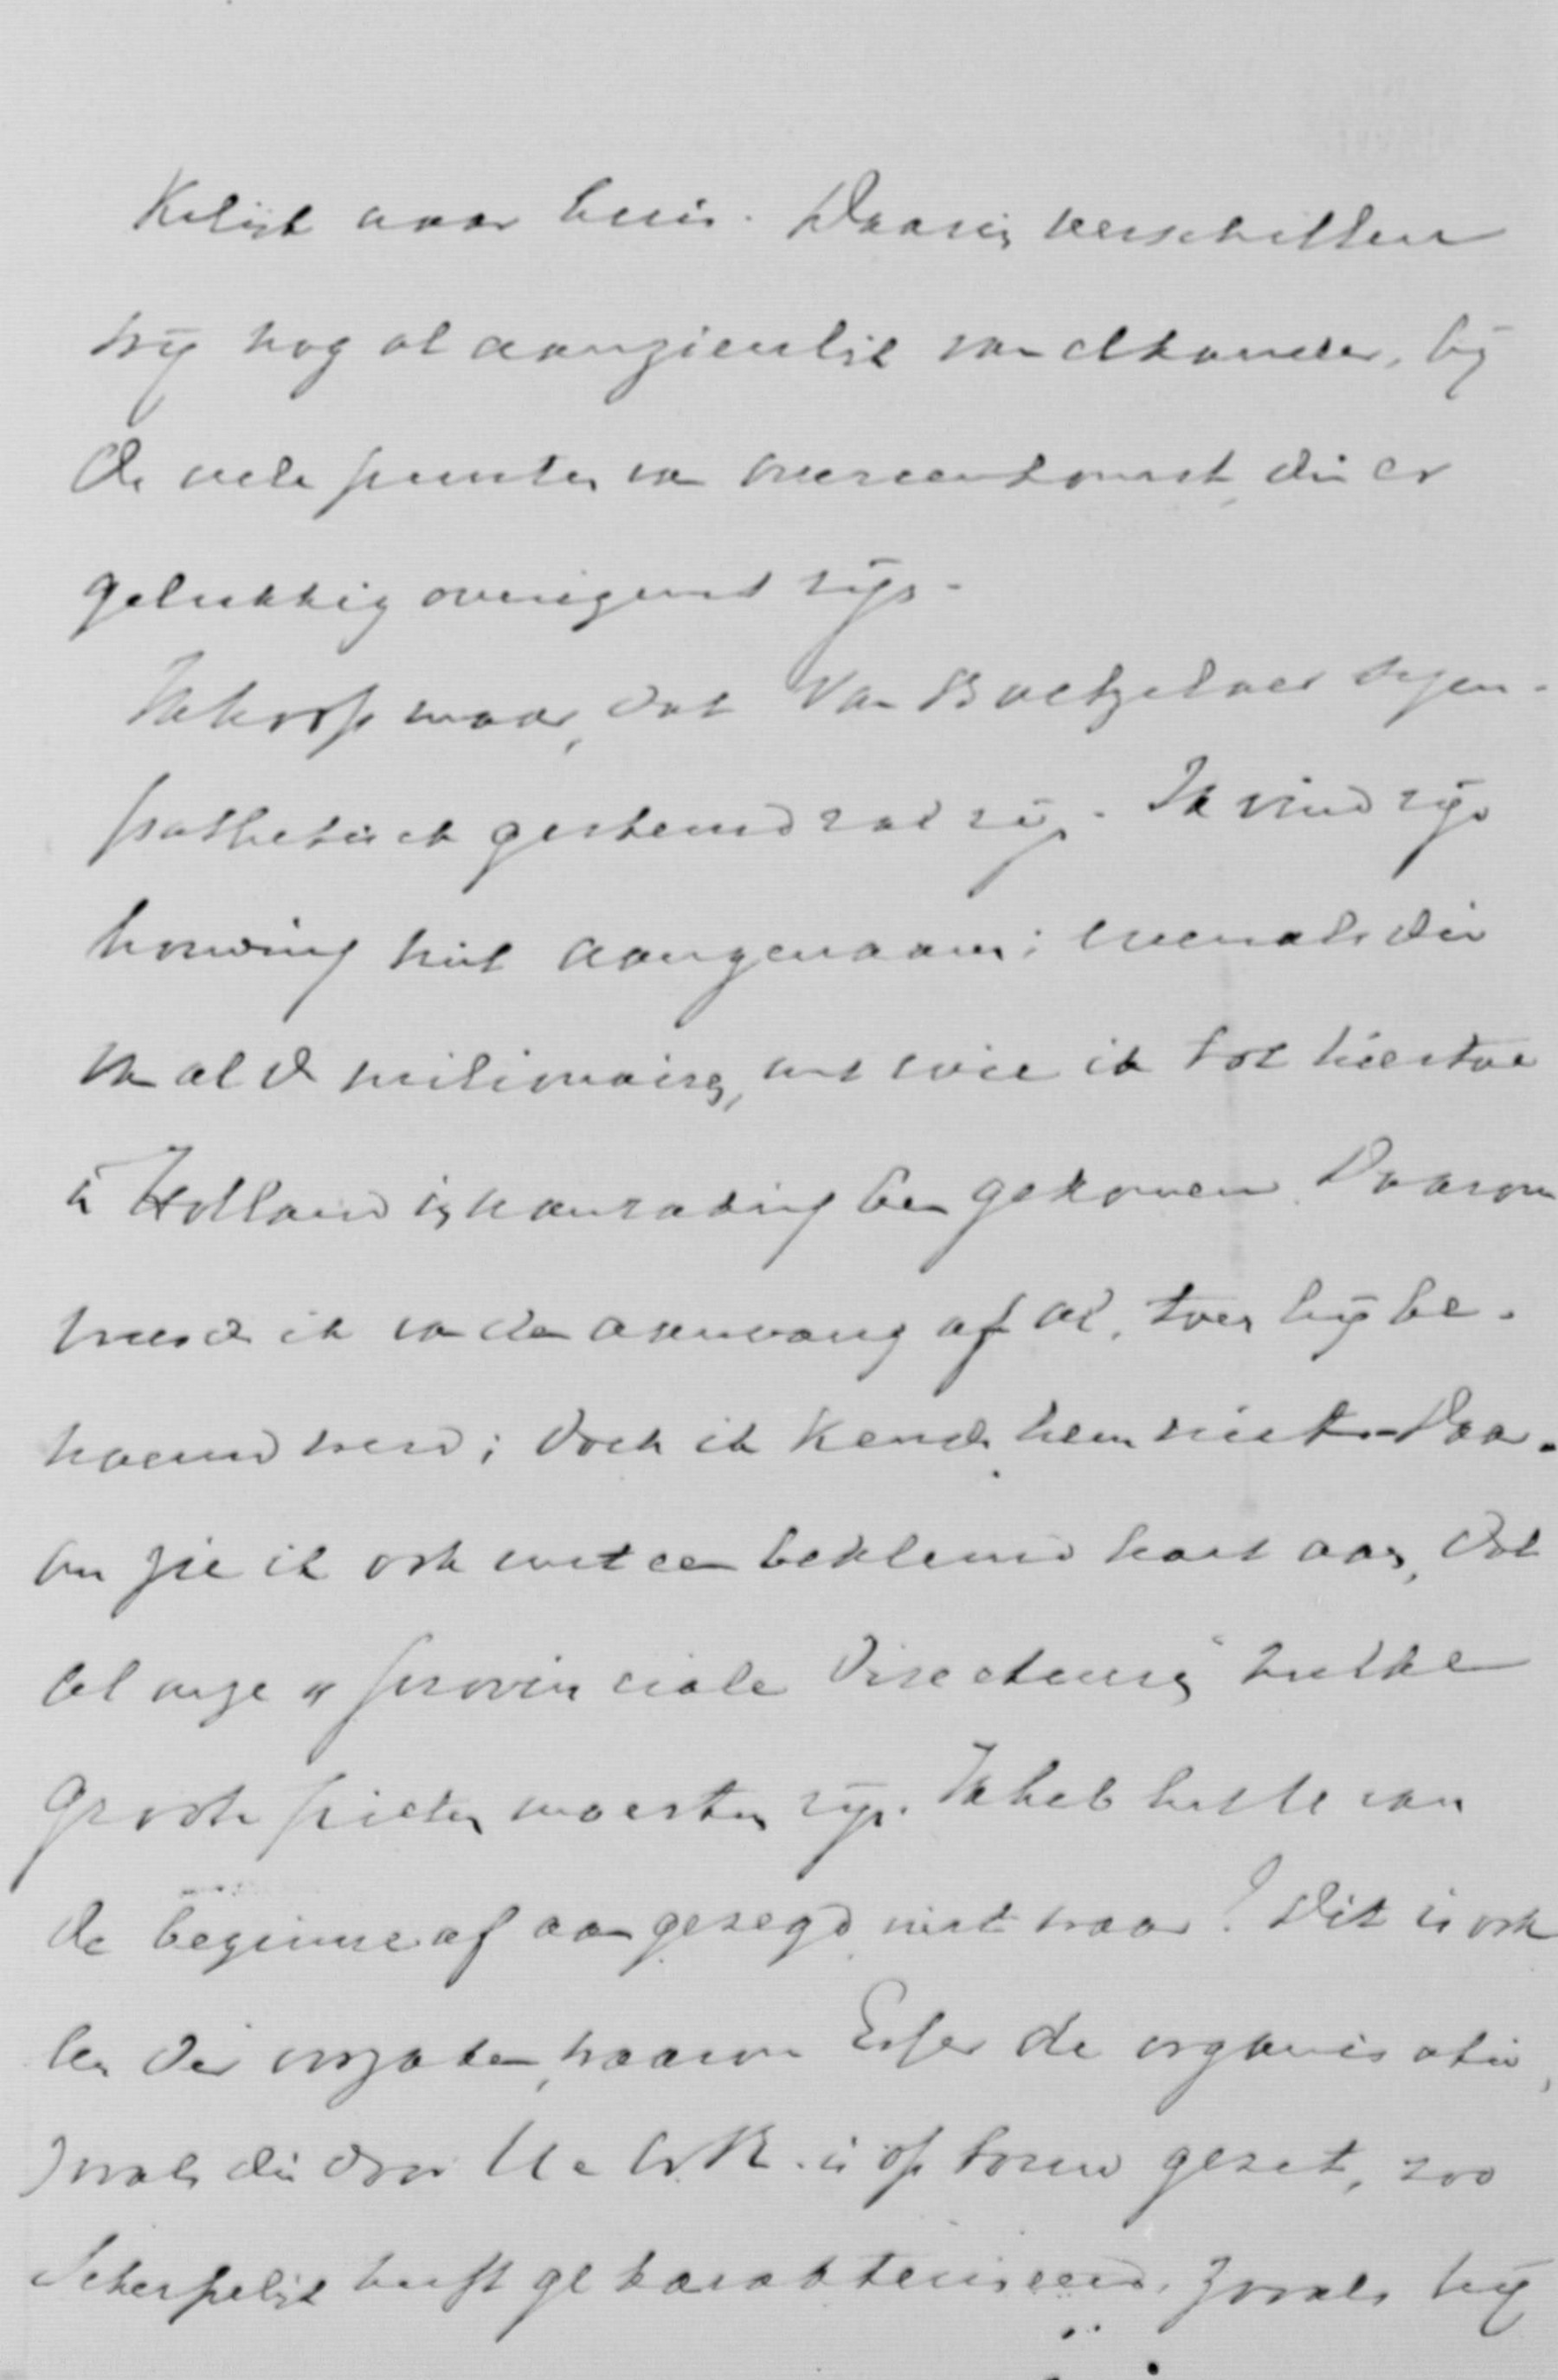 kelijk naar huis. Daarin verschillen
wij nog al aanzienlijk van elkander, bij
de vele punten van overeenkomst, die er
gelukkig overigens zijn.
Ik hoop maar, dat Van Boetzelaer sym-
pathetisch gestemd zal zijn. Ik vind zijn
houding niet aangenaam; evenals die
van al de met wie ik tot hiertoe
in Holland in aanraking ben gekomen. Daarom
ik van den aanvang af al, toen hij be-
noemd werd; doch ik kende hem niet. Daar-
om zie ik ook met een beklemd hart aan, dat
al onze "provinciale Directeuren" zulke
groote pieten moesten zijn. Ik heb het U van
de beginne af aan gezegd, niet waar? Dit is ook
een der oorzaken, waarom Esser de organisatie,
zooals die door is op touw gezet, zoo
scherpelijk heeft gekarakteriseerd, zooals hij